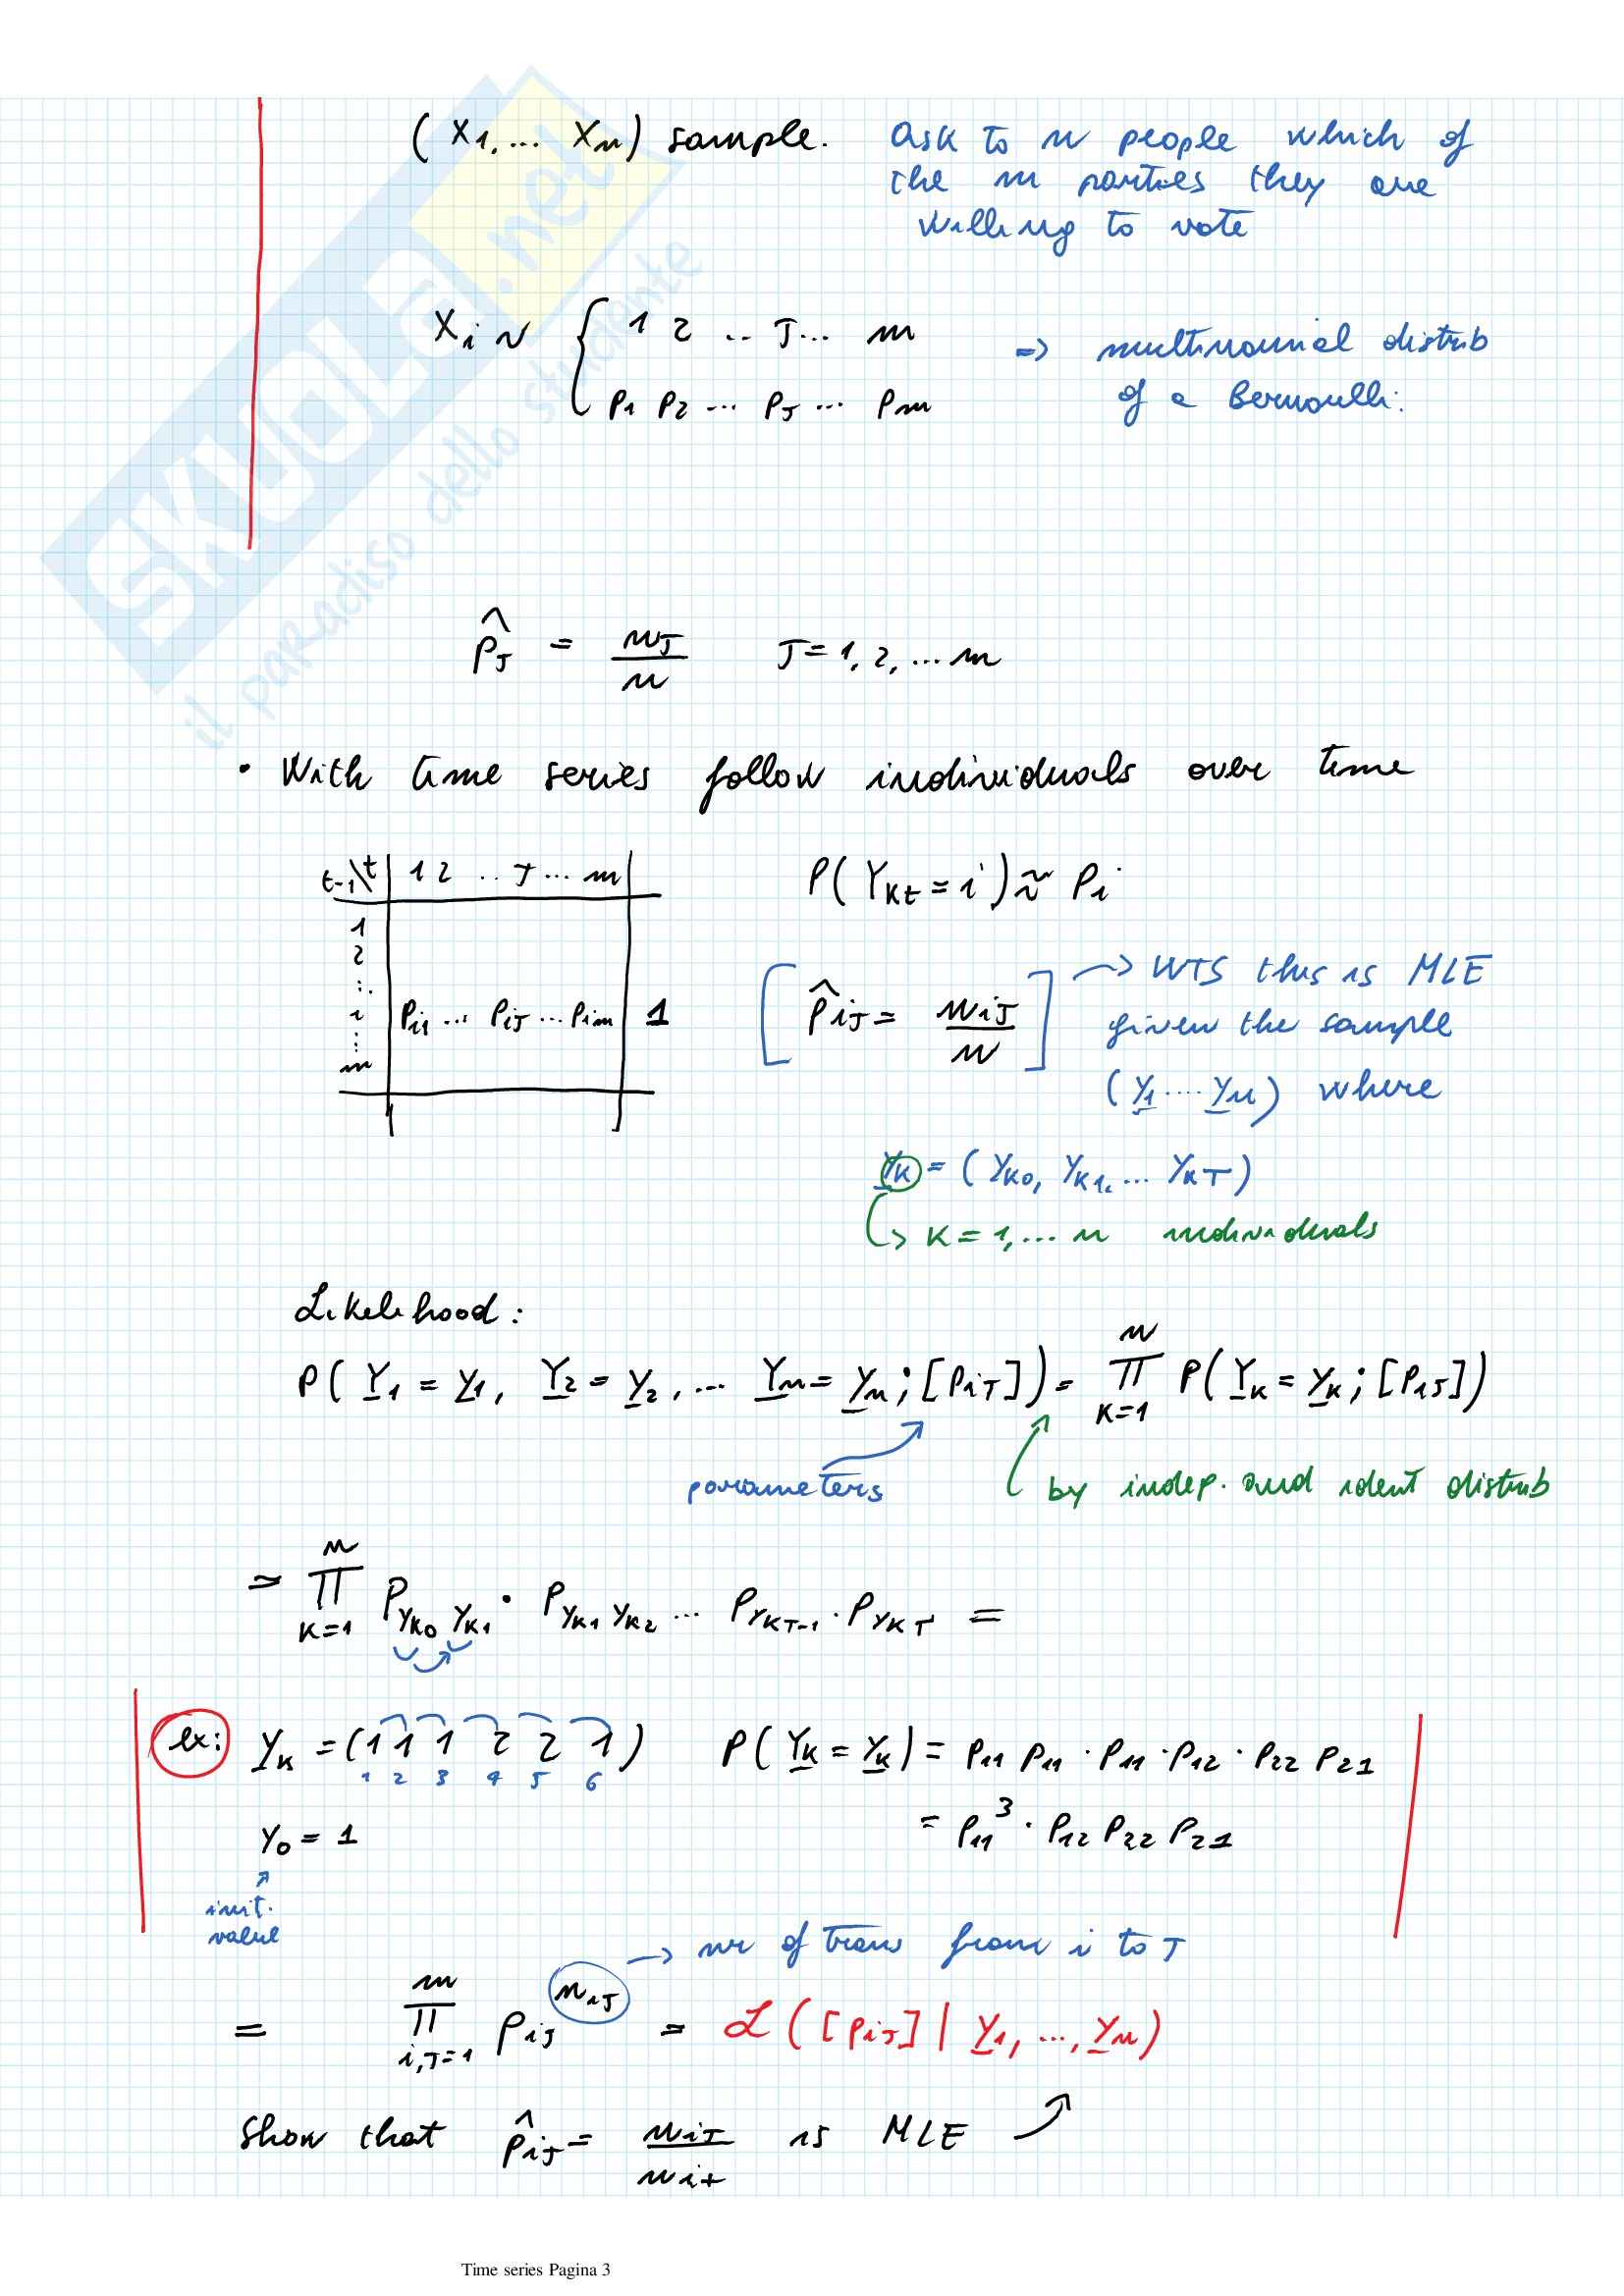 (X₁,... Xₙ) sample. Ask to n people which of
the m parties they are
willing to vote
Xᵢ ~ { 1 2 .. J... m
p₁ p₂ ... p_J ... pₘ
=> multinomial distrib
of a Bernoulli.
p̂_J = n_J / n J = 1, 2, ... m
• With time series follow individuals over time
t-1\t | 1 2 .. J ... m |
1
2
:.
i | p_i1 ... p_iJ ... p_im | 1
:
m
P(Y_Kt = i) ≈ p_i
[ p̂_iJ = n_iJ / n ] → WTS this is MLE
given the sample
(y₁ .... yₙ) where
y_K = (y_K0, y_K1, ... y_KT)
↳ K = 1, ... n individuals
Likelihood:
P( Y₁ = y₁, Y₂ = y₂, ... Yₙ = yₙ ; [p_iJ]) = ∏_{K=1}^{n} P(Y_K = y_K ; [p_iJ])
parameters
by indep. and ident distrib
= ∏_{K=1}^{n} P_{y_K0 y_K1} · P_{y_K1 y_K2} ... P_{y_KT-1} · P_{y_KT} =
ex: y_K = (1 1 1 2 2 1) P(Y_K = y_K) = p₁₁ p₁₁ · p₁₁ · p₁₂ · p₂₂ p₂₁
1 2 3 4 5 6
= p₁₁³ · p₁₂ p₂₂ p₂₁
y₀ = 1
init.
value
→ nr of trans from i to J
= ∏_{i,J=1}^{m} p_iJ^{n_iJ} = L([p_iJ] | y₁, ..., yₙ)
Show that p̂_iJ = n_iJ / n_i+ is MLE
Time series Pagina 3
SKUOLA.net
il paradiso dello studente